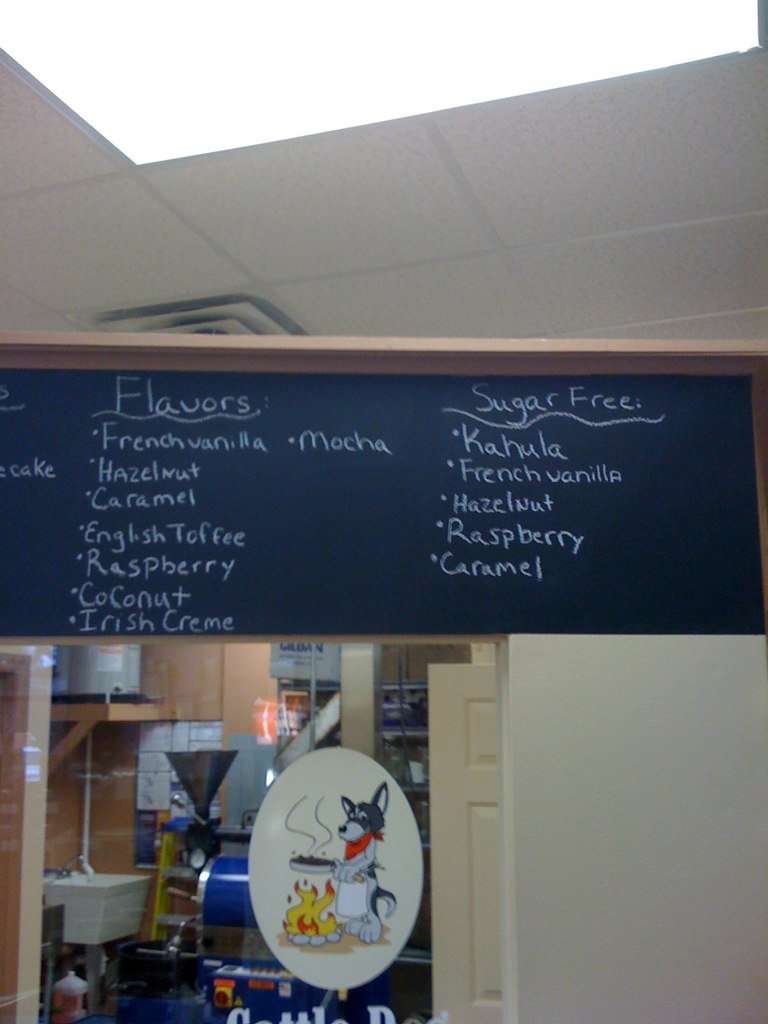 s
ecake
Flavors:
•Frenchvanilla •Mocha
•HAzelNut
•Caramel
•English Toffee
•Raspberry
•Coconut
•Irish Creme
Sugar Free:
•Kahula
•French vanillA
•HazelNut
•Raspberry
•Caramel